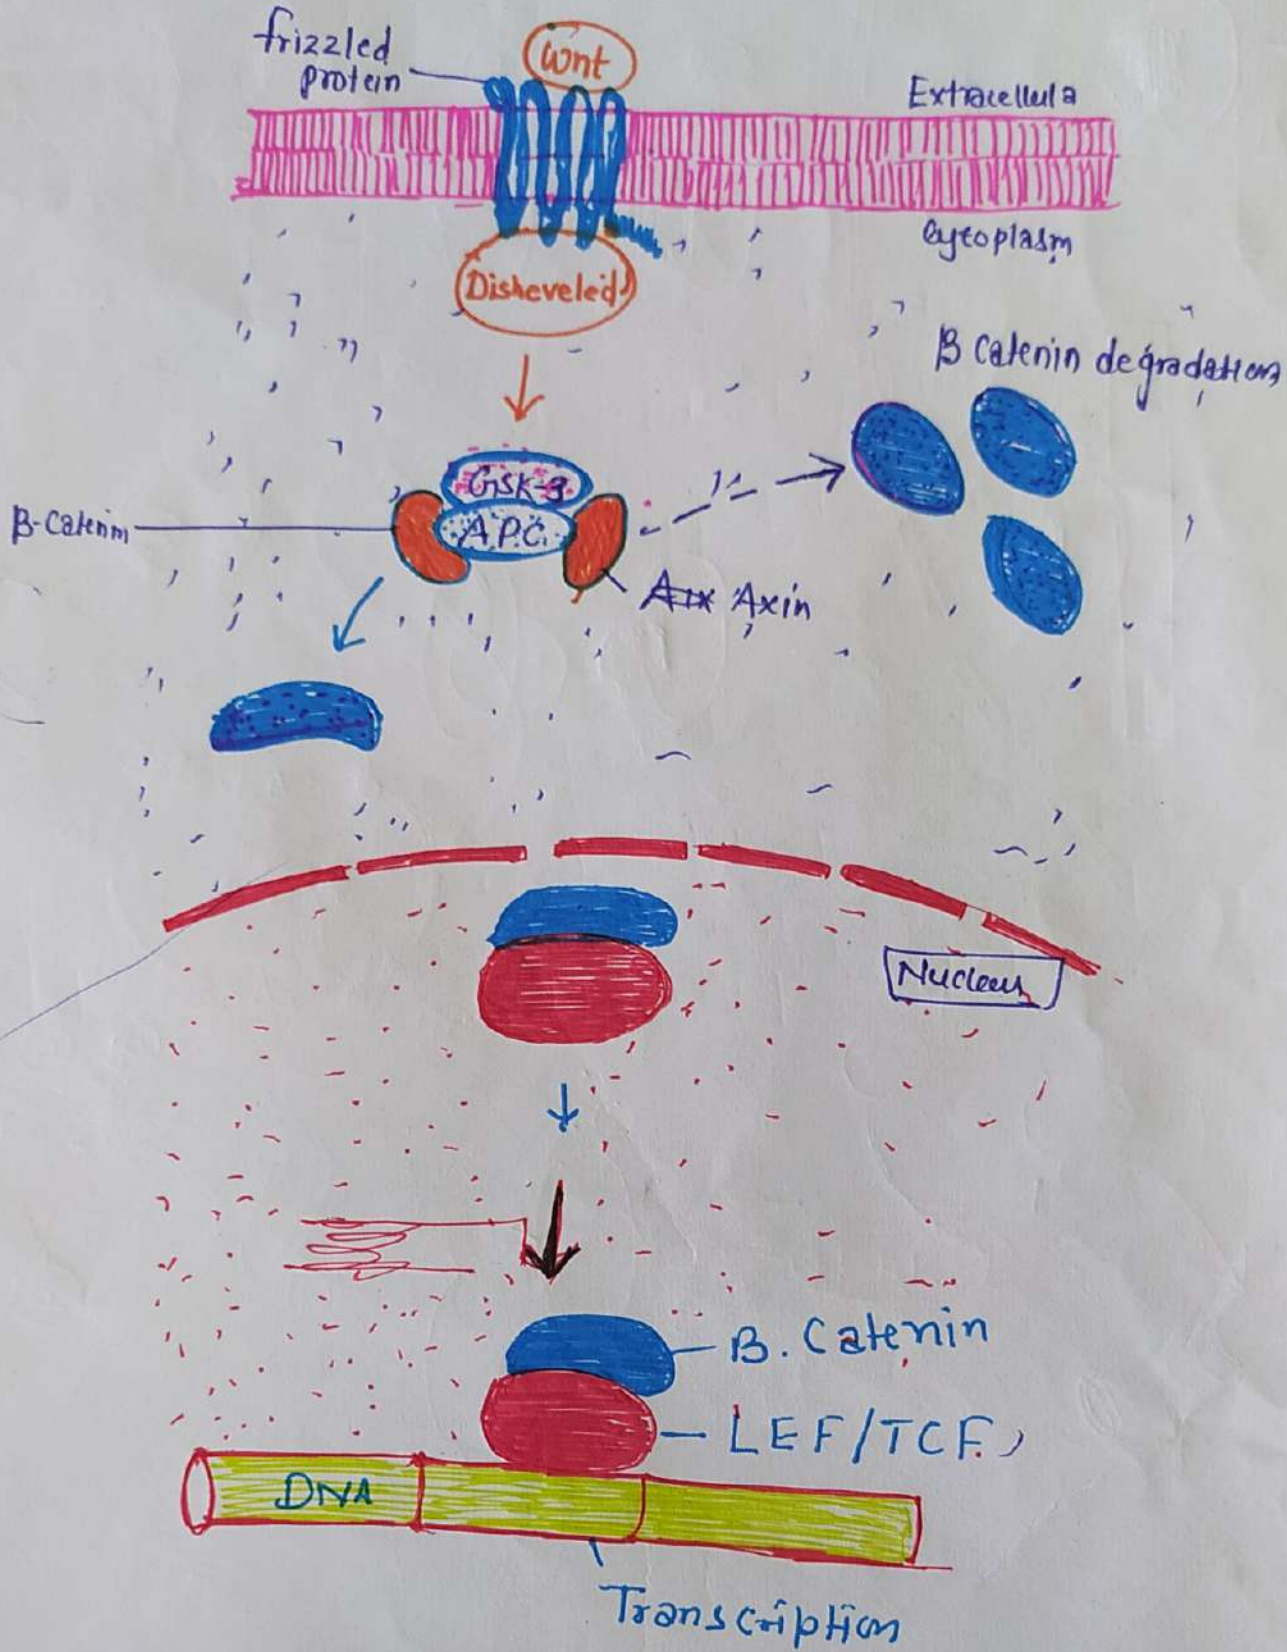 frizzled
protein
Wnt
Extracellula
Cytoplasm
Disheveled
β Catenin degradation
GSK-3
β-Catenin
A.P.C.
Axin
Nucleus
B. Catenin
LEF/TCF
DNA
Transcription